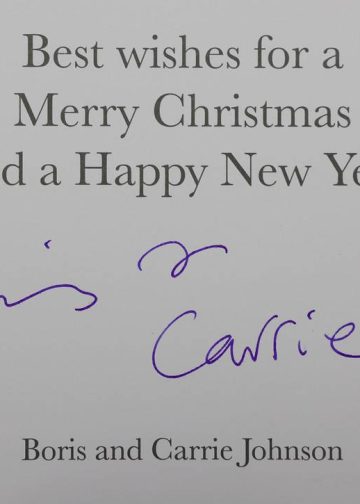 Best wishes for a
Merry Christmas
d a Happy New Ye
is &
Carrie
Boris and Carrie Johnson